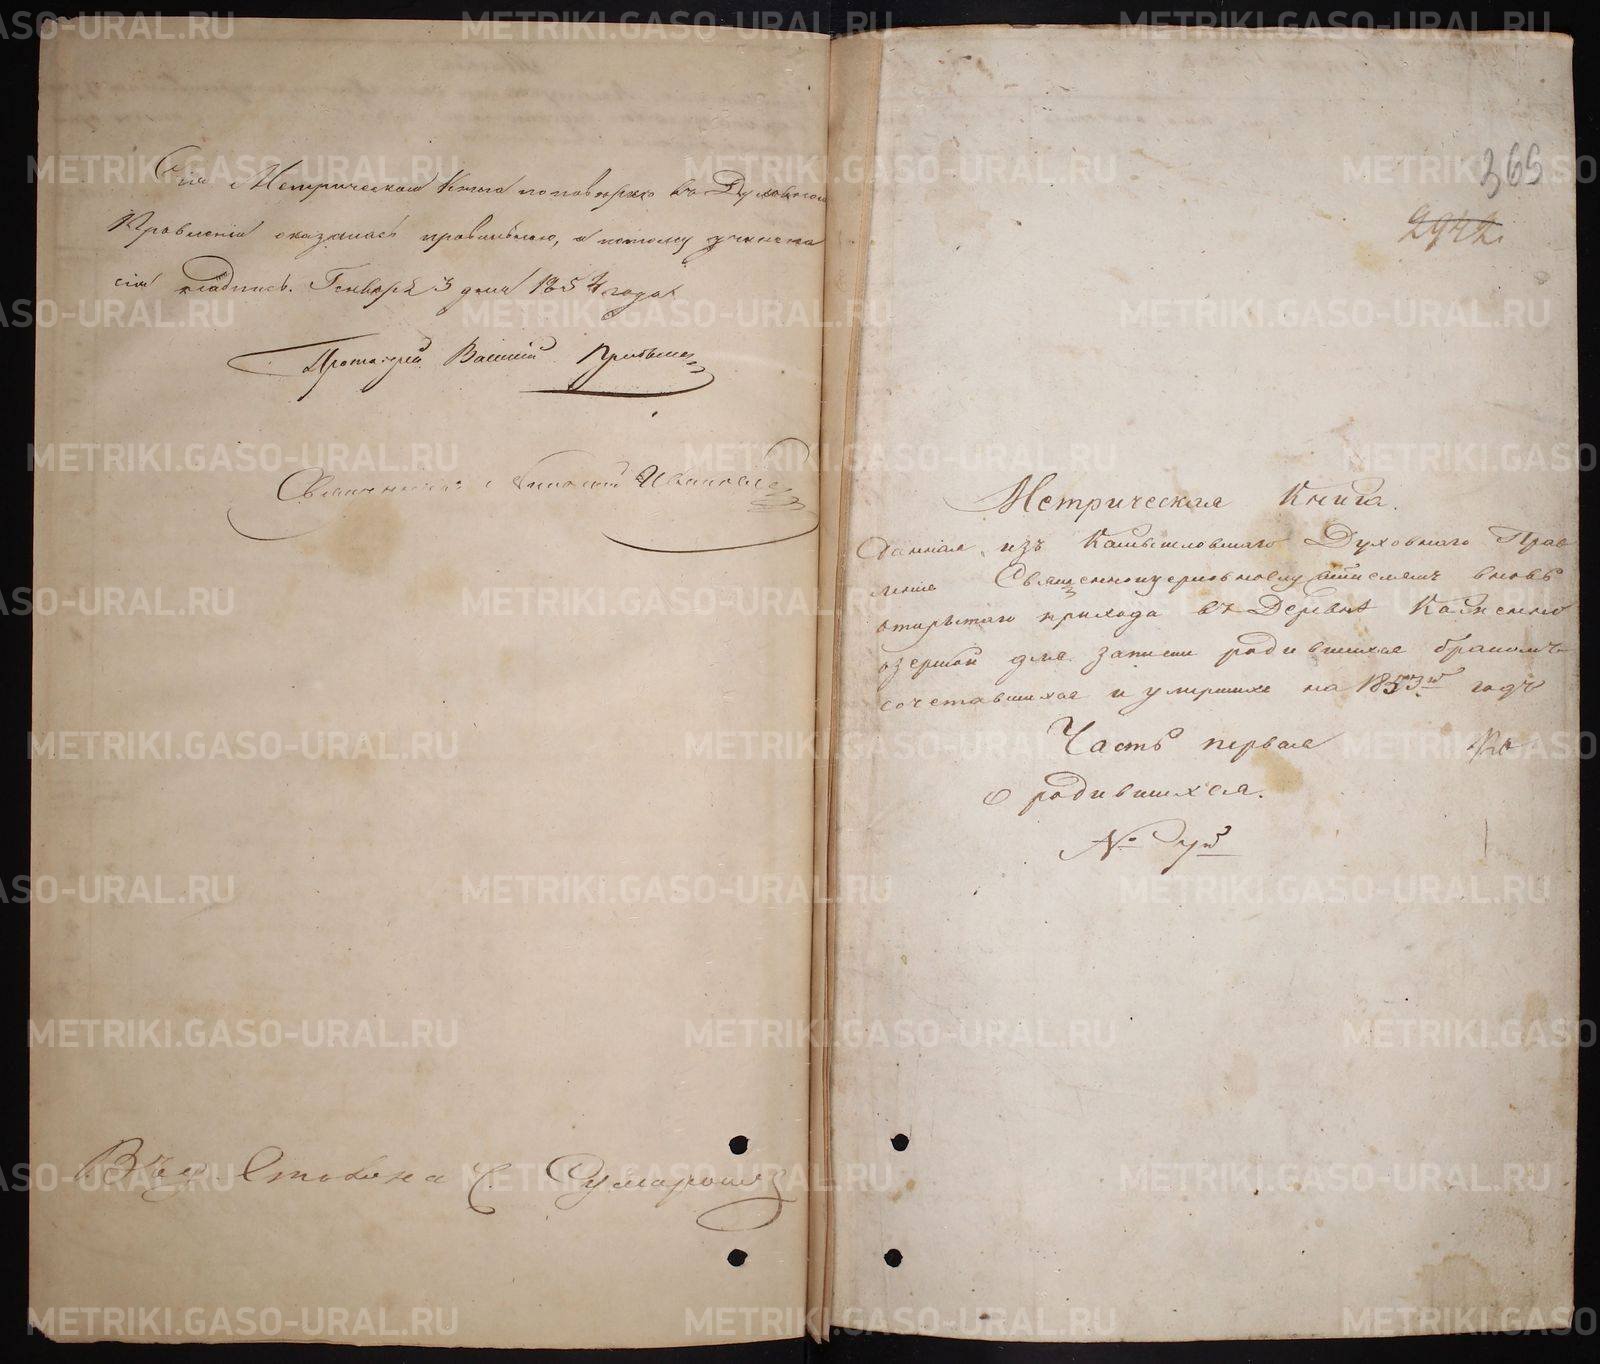 Сія Метрическая Книга по поверкѣ въ Духовномъ
Правленіи оказалась правильною, а потому учинена
сія надпись. Генваря 3 дня 1854 года
Протоіерей Василій
Священникъ
365
2942
Метрическая Книга.
Данная изъ Камышловскаго Духовнаго Прав
ленія Священноцерковнослужителямъ вновь
открытаго прихода въ Деревнѣ Каменно
озерской для записи родившихся бракомъ
сочетавшихся и умершихъ на 1853й годъ
Часть первая
о родившихся.
№
METRIKI.GASO-URAL.RU